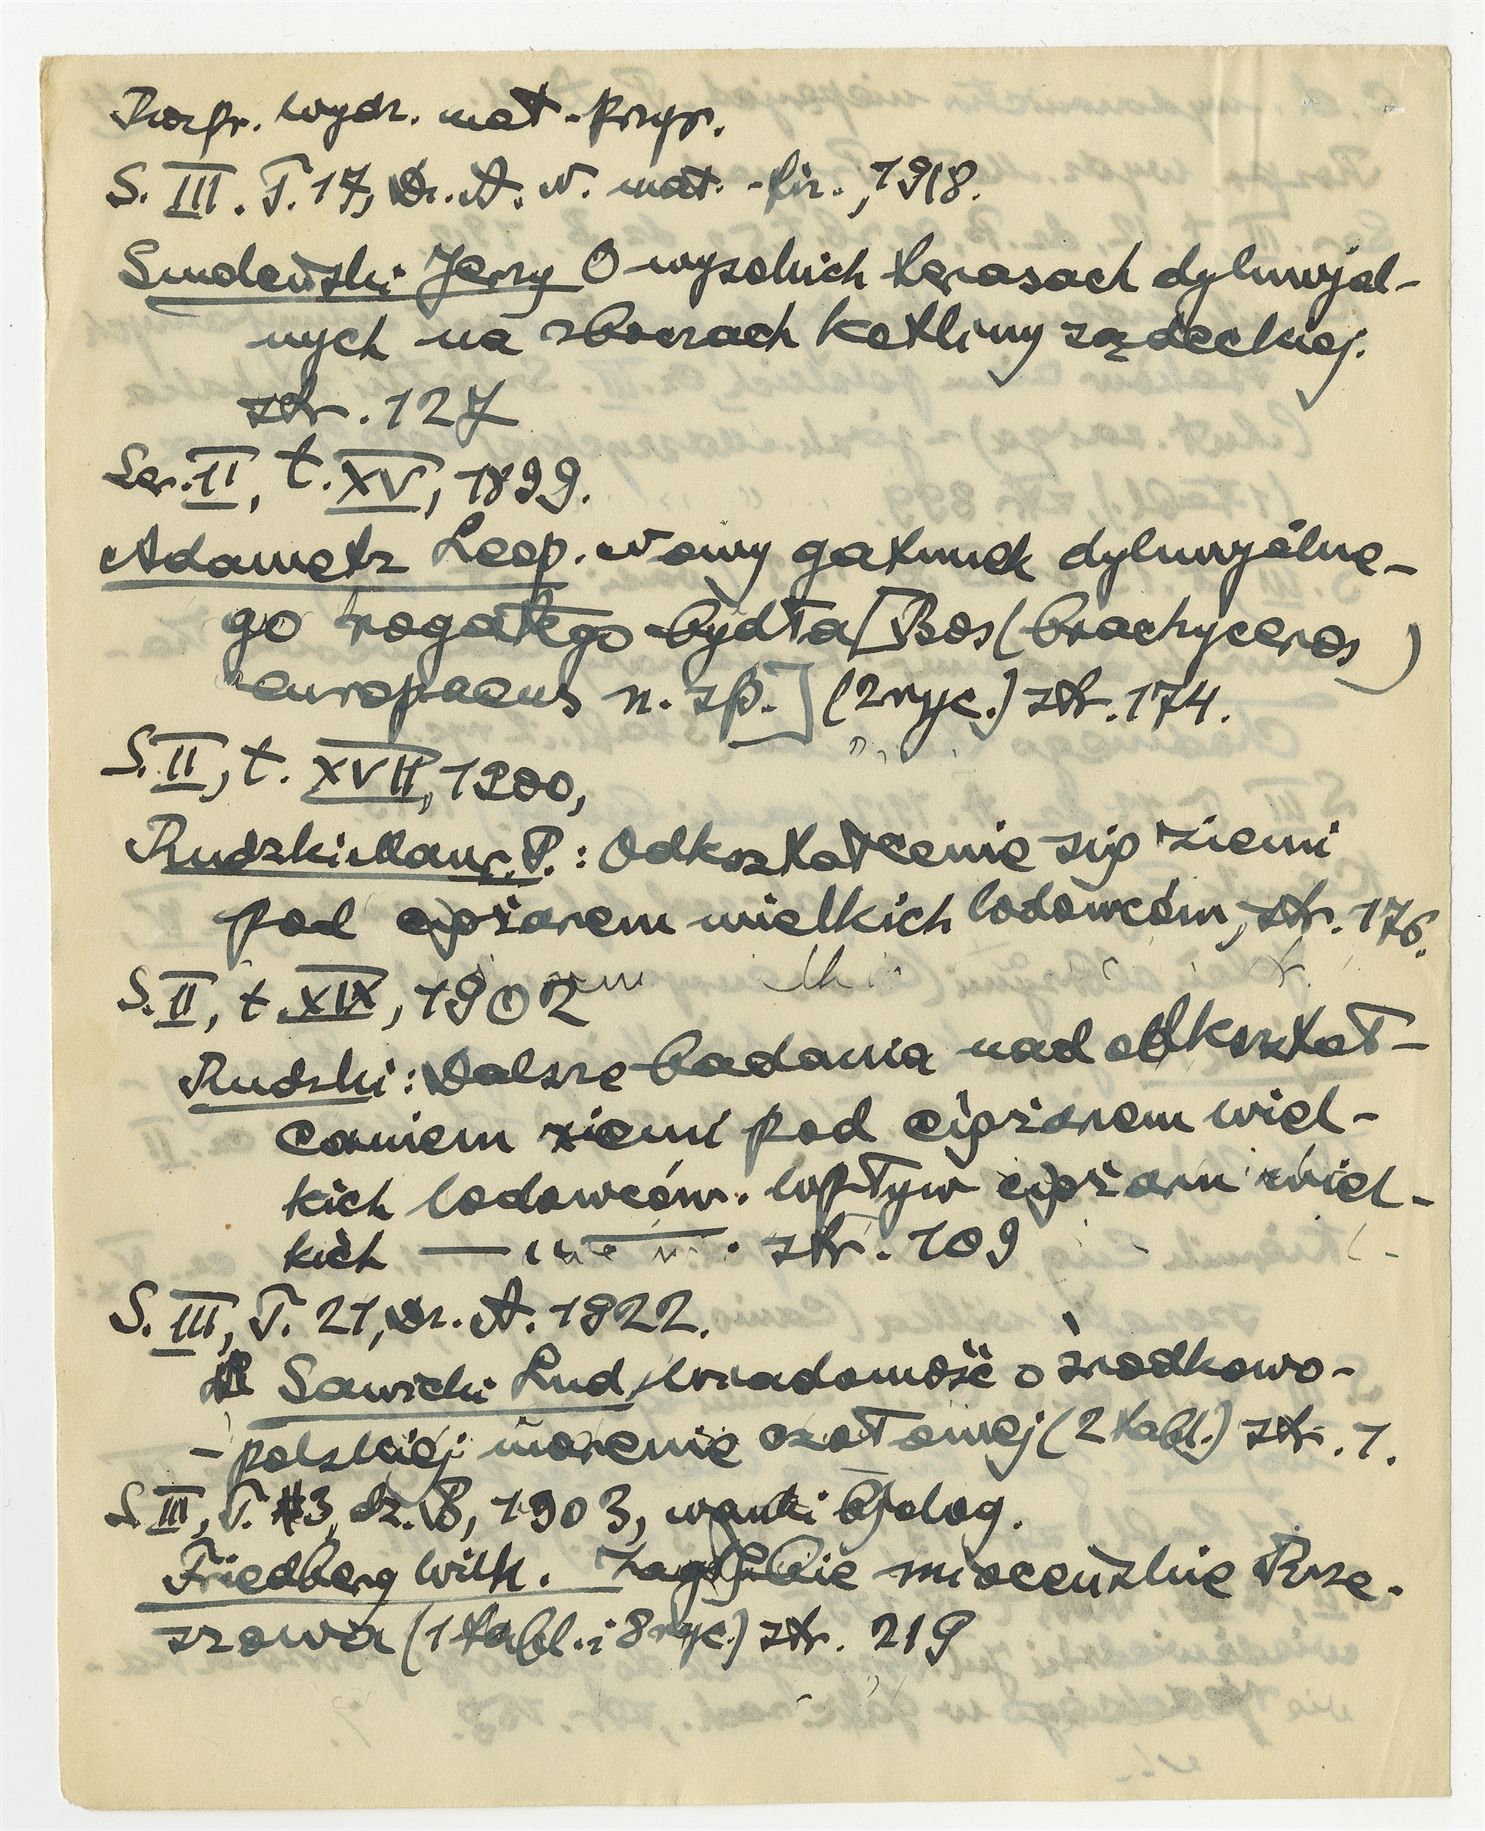 Rozpr. wydz. mat-przyr.
S. III. T. 17, Dz. A. N. mat. - fiz., 1918.
Smoleński Jerzy O wysokich terasach dyluwjal-
nych na zboczach kotliny sądeckiej.
str. 127
Ser. II, t. XV, 1899.
Adametz Leop. Nowy gatunek dyluwyalne-
go rogatego bydła [Bos (brachyceros)
europaeus n. sp.] (2 ryc.) str. 174.
S. II, t. XVII, 1900,
Rudzki Maur. P.: Odkształcenie się ziemi
pod ciężarem wielkich lodowców, str. 176.
S. II, t. XIX, 1902
Rudzki: Dalsze badania nad odkształ-
caniem ziemi pod ciężarem wiel-
kich lodowców. Wpływ ciężaru wiel-
kich — str. 109
S. III, T. 21, Dz. A. 1922.
Sawicki Lud. Wiadomość o środkowo-
-polskiej morenie czołowej (2 tabl.) str. 1.
S. III, T. 3, dz. B, 1903, nauki bjolog.
Friedberg Wilh. Zagłębie mioceńskie Rze-
szowa (1 tabl. i 8 ryc.) str. 219